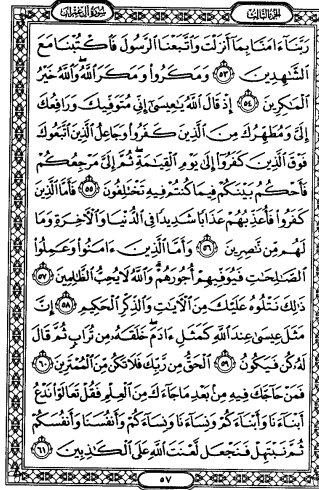 سورة آل عمران
الجزء الثالث
رَبَّنَآ ءَامَنَّا بِمَآ أَنزَلْتَ وَٱتَّبَعْنَا ٱلرَّسُولَ فَٱكْتُبْنَا مَعَ
ٱلشَّٰهِدِينَ ٥٣ وَمَكَرُوا۟ وَمَكَرَ ٱللَّهُ وَٱللَّهُ خَيْرُ
ٱلْمَٰكِرِينَ ٥٤ إِذْ قَالَ ٱللَّهُ يَٰعِيسَىٰٓ إِنِّى مُتَوَفِّيكَ وَرَافِعُكَ
إِلَىَّ وَمُطَهِّرُكَ مِنَ ٱلَّذِينَ كَفَرُوا۟ وَجَاعِلُ ٱلَّذِينَ ٱتَّبَعُوكَ
فَوْقَ ٱلَّذِينَ كَفَرُوٓا۟ إِلَىٰ يَوْمِ ٱلْقِيَٰمَةِ ثُمَّ إِلَىَّ مَرْجِعُكُمْ
فَأَحْكُمُ بَيْنَكُمْ فِيمَا كُنتُمْ فِيهِ تَخْتَلِفُونَ ٥٥ فَأَمَّا ٱلَّذِينَ
كَفَرُوا۟ فَأُعَذِّبُهُمْ عَذَابًا شَدِيدًا فِى ٱلدُّنْيَا وَٱلْءَاخِرَةِ وَمَا
لَهُم مِّن نَّٰصِرِينَ ٥٦ وَأَمَّا ٱلَّذِينَ ءَامَنُوا۟ وَعَمِلُوا۟
ٱلصَّٰلِحَٰتِ فَيُوَفِّيهِمْ أُجُورَهُمْ وَٱللَّهُ لَا يُحِبُّ ٱلظَّٰلِمِينَ ٥٧
ذَٰلِكَ نَتْلُوهُ عَلَيْكَ مِنَ ٱلْءَايَٰتِ وَٱلذِّكْرِ ٱلْحَكِيمِ ٥٨ إِنَّ
مَثَلَ عِيسَىٰ عِندَ ٱللَّهِ كَمَثَلِ ءَادَمَ خَلَقَهُۥ مِن تُرَابٍ ثُمَّ قَالَ
لَهُۥ كُن فَيَكُونُ ٥٩ ٱلْحَقُّ مِن رَّبِّكَ فَلَا تَكُن مِّنَ ٱلْمُمْتَرِينَ ٦٠
فَمَنْ حَآجَّكَ فِيهِ مِنۢ بَعْدِ مَا جَآءَكَ مِنَ ٱلْعِلْمِ فَقُلْ تَعَالَوْا۟ نَدْعُ
أَبْنَآءَنَا وَأَبْنَآءَكُمْ وَنِسَآءَنَا وَنِسَآءَكُمْ وَأَنفُسَنَا وَأَنفُسَكُمْ
ثُمَّ نَبْتَهِلْ فَنَجْعَل لَّعْنَتَ ٱللَّهِ عَلَى ٱلْكَٰذِبِينَ ٦١
٥٧